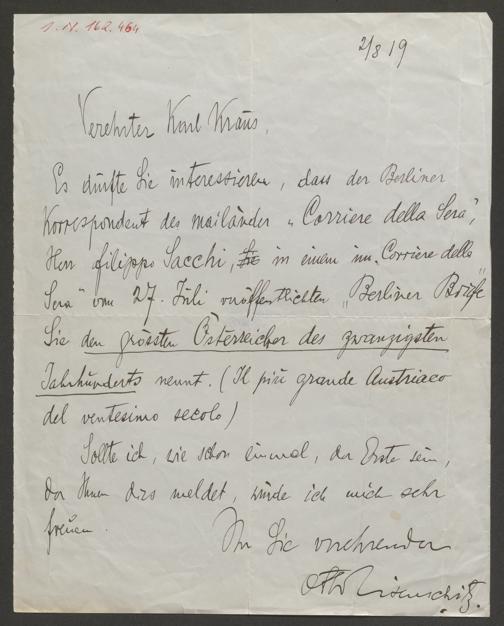 I. N. 162.464
2/8 19
Verehrter Karl Kraus,
Es dürfte Sie interessieren, dass der Berliner
Korrespondent des mailänder „Corriere della Sera",
Herr filippo Sacchi, Sie in einem im „Corriere della
Sera" vom 27. Juli veröffentlichten „Berliner Briefe"
Sie den grössten Österreicher des zwanzigsten
Jahrhunderts nennt. (Il più grande Austriaco
del ventesimo secolo)
Sollte ich, wie schon einmal, der Erste sein,
der Ihnen dies meldet, würde ich mich sehr
freuen.
Ihr Sie verehrender
Otto Eisenschitz.